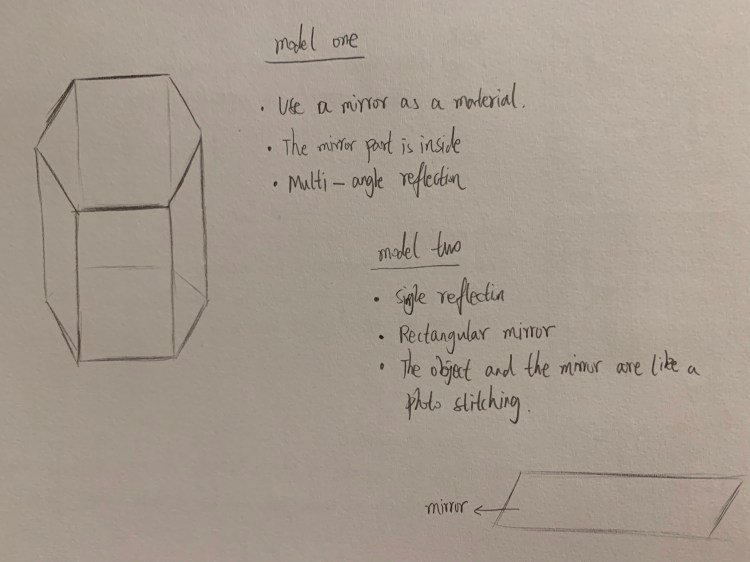 model one
• Use a mirror as a material.
• The mirror part is inside
• Multi-angle reflection
model two
• Single reflectin
• Rectangular mirror
• The object and the mirror are like a
photo stitching.
mirror